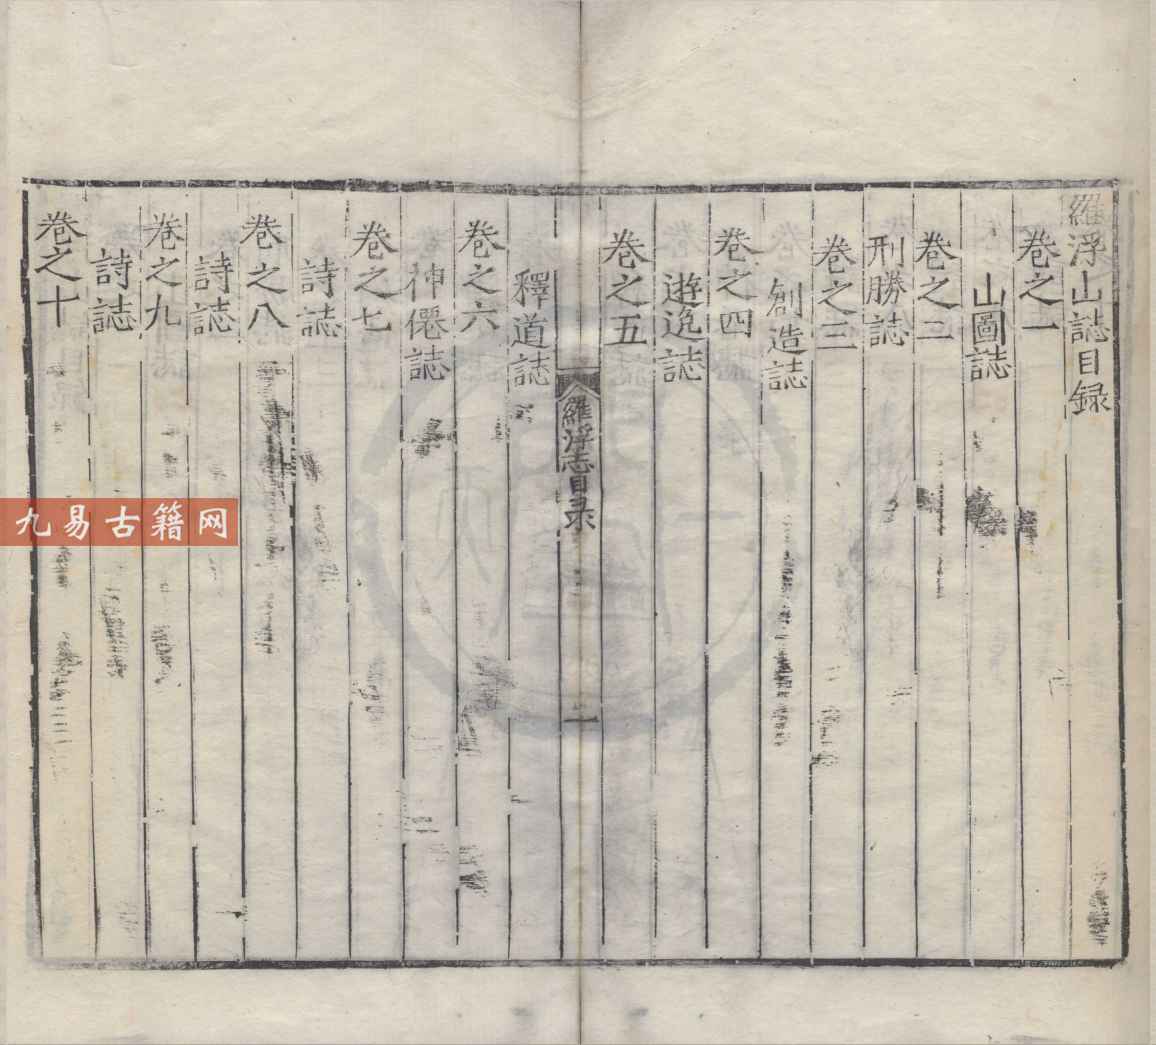 羅浮山誌目録
卷之一
山圖誌
卷之二
刑勝誌
卷之三
創造誌
卷之四
遊逸誌
卷之五
羅浮志目录
一
釋道誌
卷之六
神僊誌
卷之七
詩誌
卷之八
詩誌
卷之九
詩誌
卷之十
九易古籍网